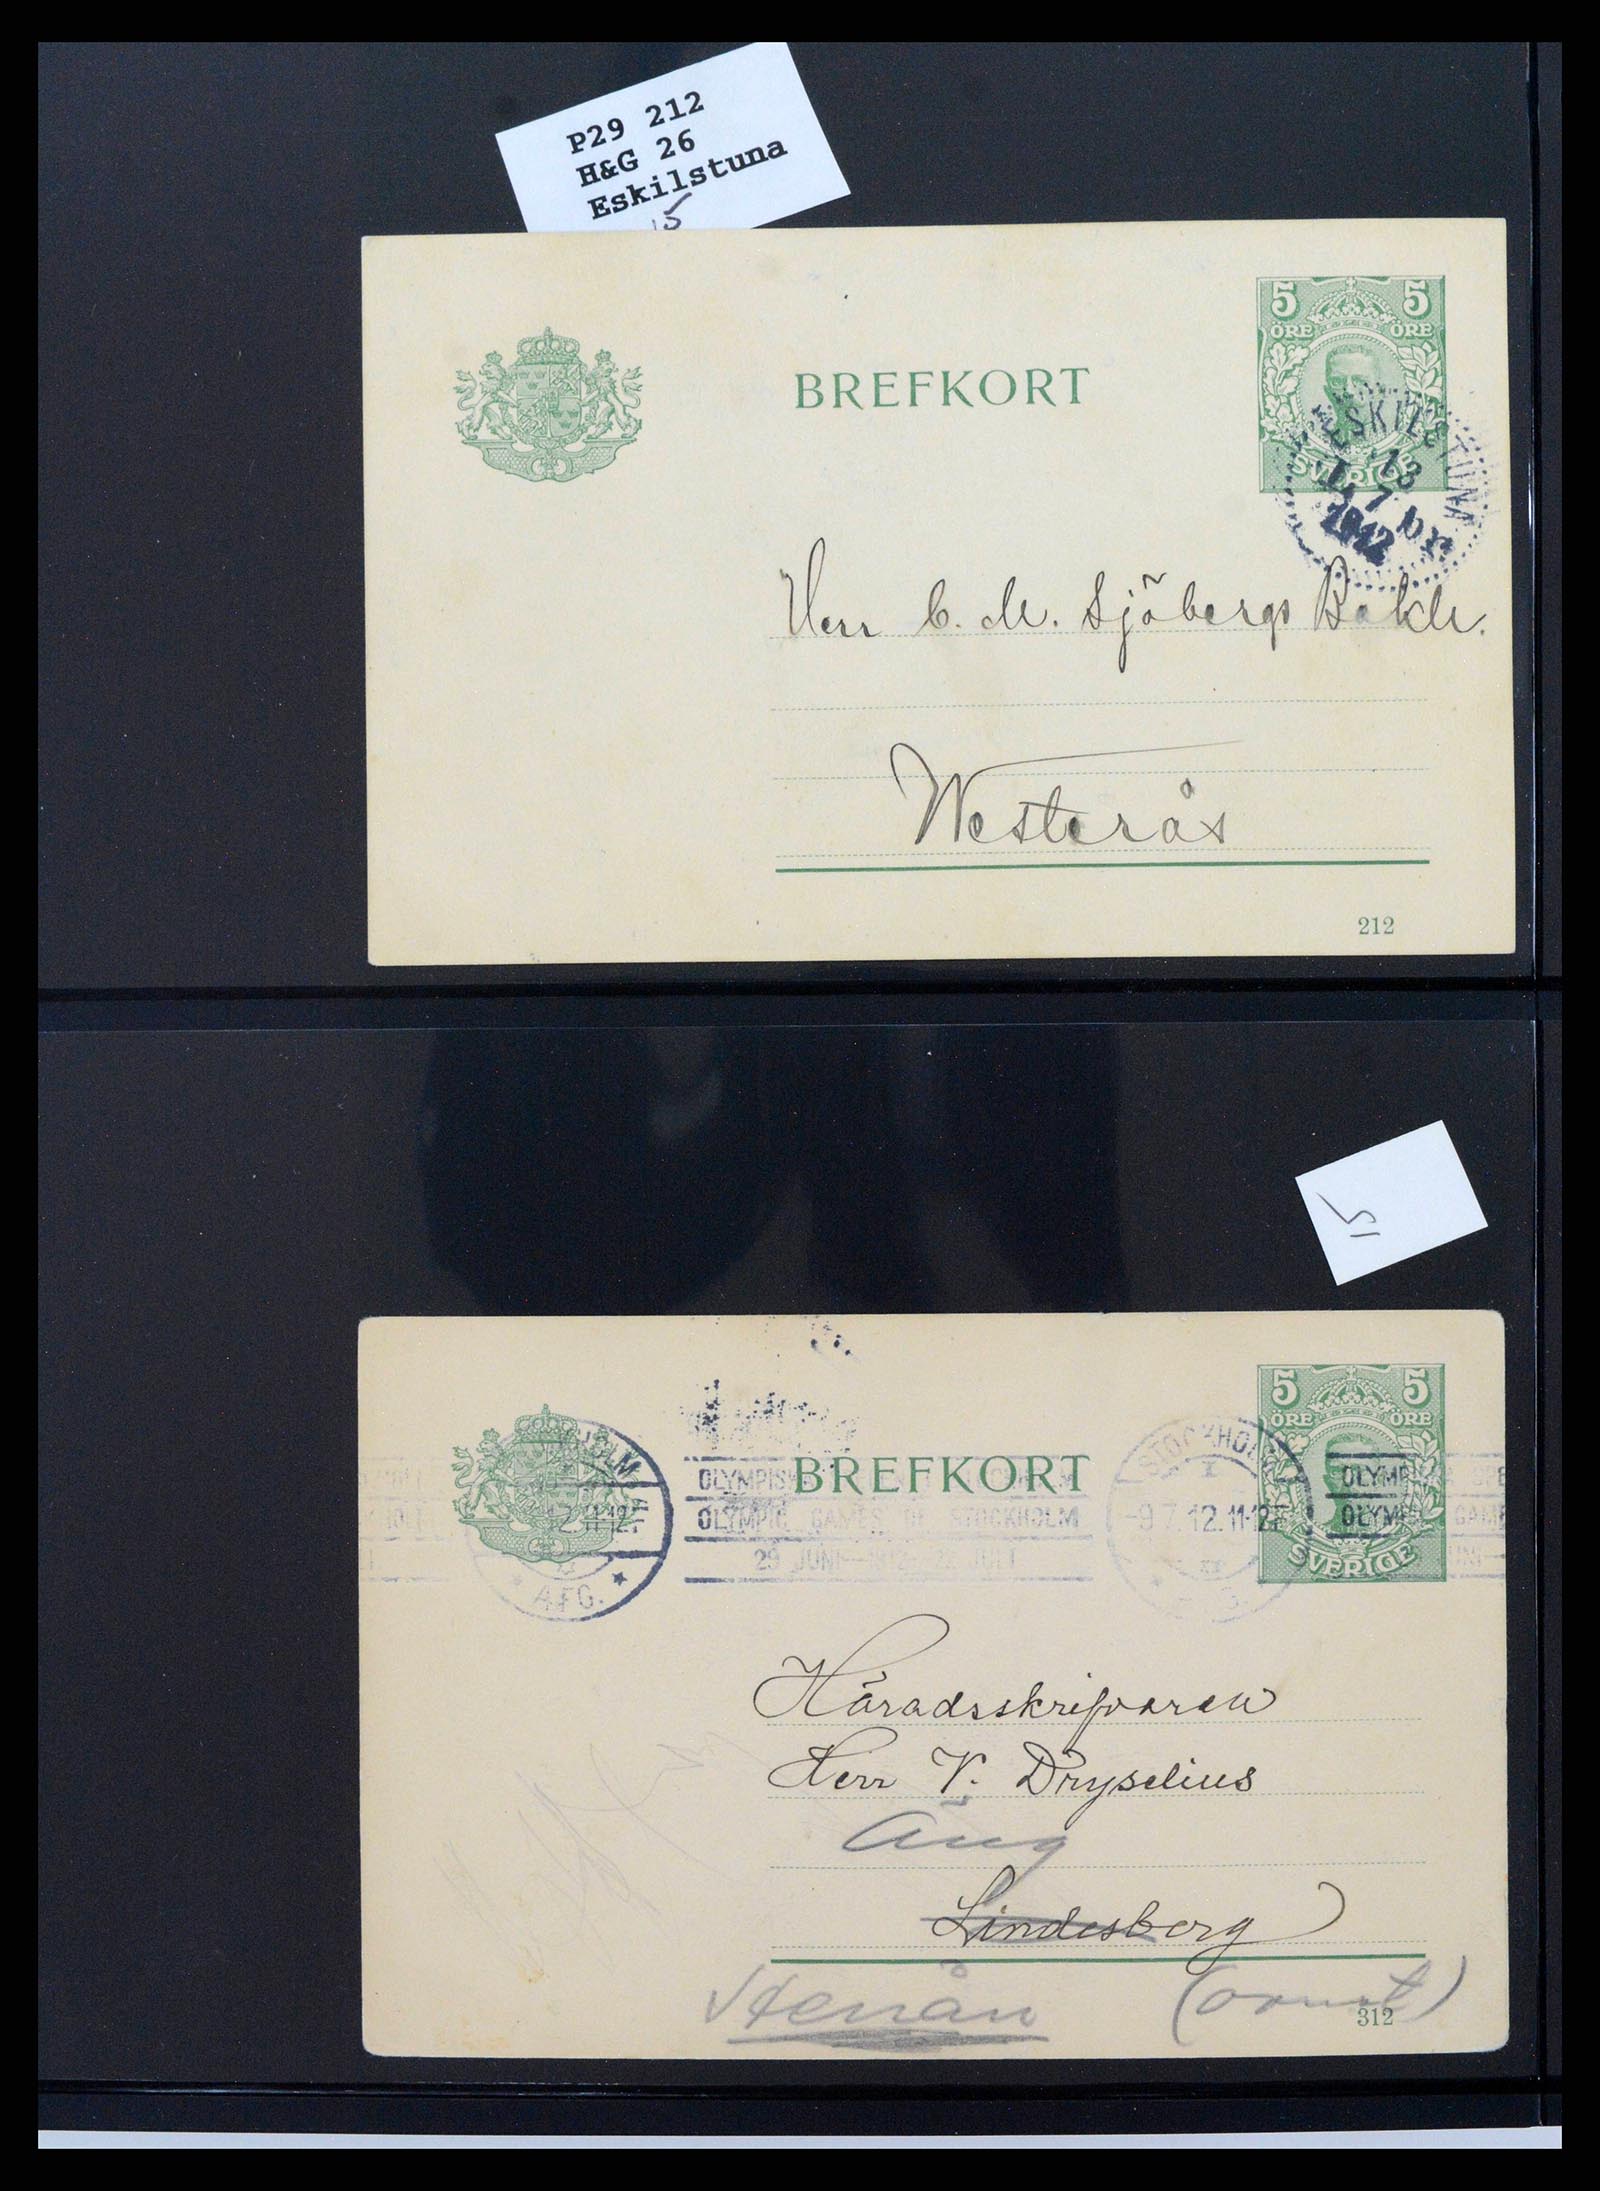 P29 212
H&G 26
Eskilstuna
15
5 5
ÖRE ÖRE
BREFKORT
SVERIGE
ESKILSTUNA
13
7
1912
Herr C. M. Sjöbergs Bokh.
Westerås
212
15
5 5
ÖRE ÖRE
BREFKORT
SVERIGE
STOCKHOLM
I
-9.7.12.11-12F
OLYMPIC GAMES OF STOCKHOLM
29 JUNI-1912-22 JULI
12.11-12F
AFG.
OLYMP
OLYMPI GAME
Häradsskrifvaren
Herr V. Dryselius
Lindesberg
Stenån
312